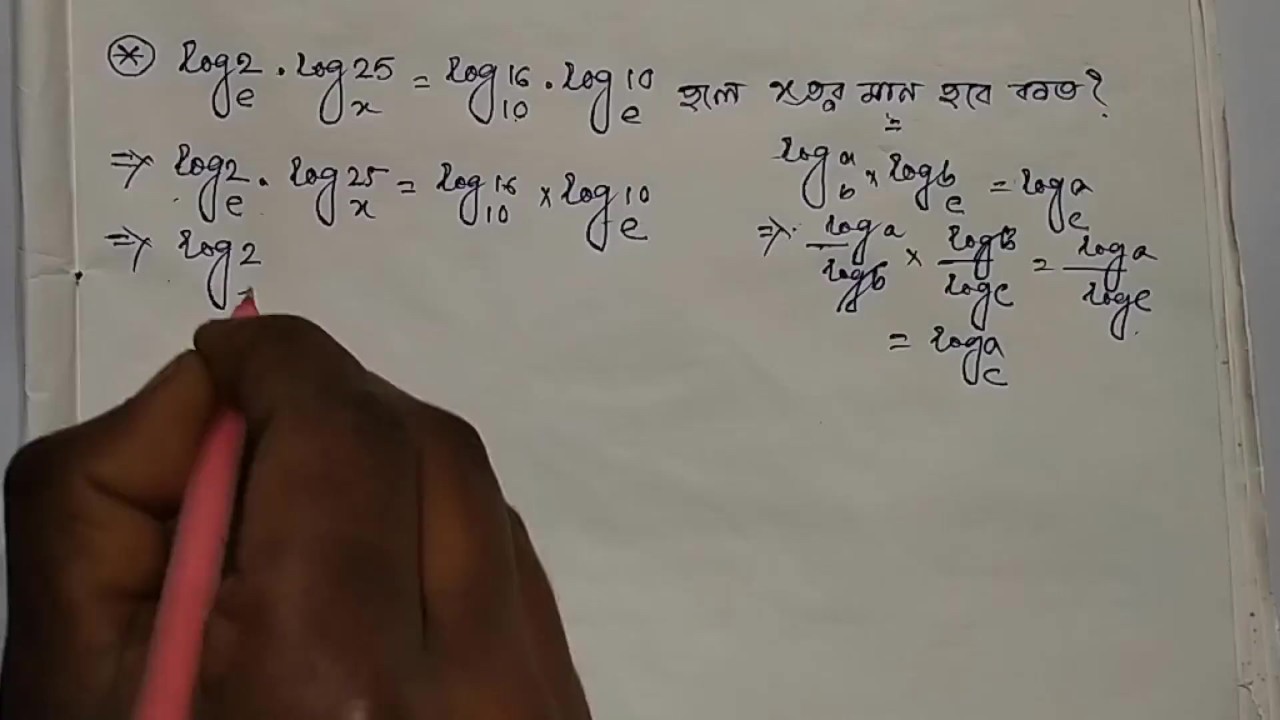 * log_e 2 . log_x 25 = log_10 16 . log_e 10 হলে x এর মান হবে কত?
⇒ log_e 2 . log_x 25 = log_10 16 × log_e 10
⇒ log 2
log_b a × log_c b = log_c a
⇒ log a / log b × log b / log c = log a / log c
= log_c a